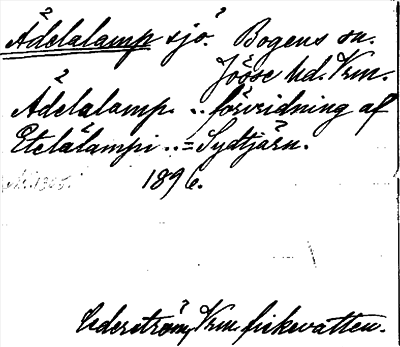 Ådelalamp sjö. Bogens sn.
Jösse hd. Vrm.
Ådelalamp. .. förvridning af
Etelälampi .. = Sydtjärn.
1896.
Cederström, Vrm fiskevatten.